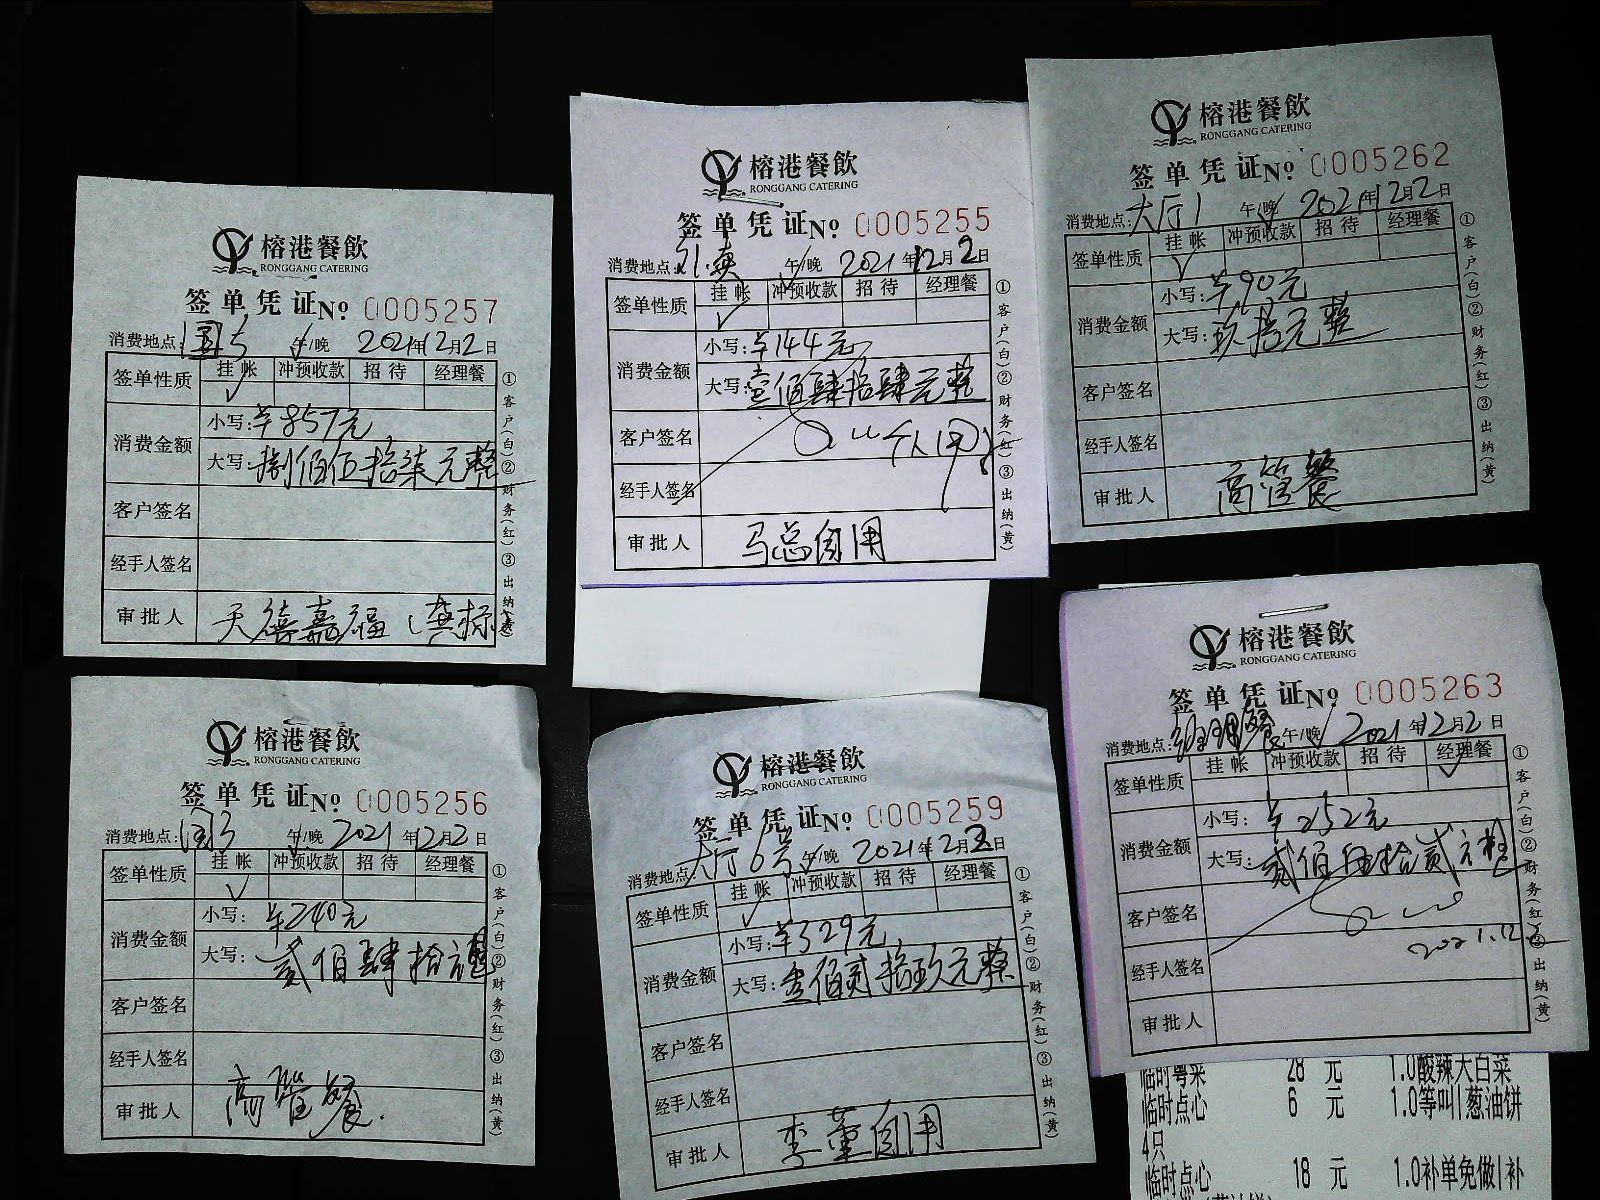 榕港餐飲
RONGGANG CATERING
签单凭证No 0005257
消费地点: 国5 午/晚 2021年12月2日
签单性质 挂帐 冲预收款 招待 经理餐
消费金额 小写:￥857元
大写:捌佰伍拾柒元整
客户签名
经手人签名
审批人 天禧嘉福
①客户(白)②财务(红)③出纳(黄)
榕港餐飲
RONGGANG CATERING
签单凭证No 0005255
消费地点: 外卖 午/晚 2021年12月2日
签单性质 挂帐 冲预收款 招待 经理餐
消费金额 小写:￥144元
大写:壹佰肆拾肆元整
客户签名
经手人签名
审批人 马总自用
①客户(白)②财务(红)③出纳(黄)
榕港餐飲
RONGGANG CATERING
签单凭证No 0005262
消费地点: 大厅1 午/晚 2021年12月2日
签单性质 挂帐 冲预收款 招待 经理餐
消费金额 小写:￥90元
大写:玖拾元整
客户签名
经手人签名
审批人 高管餐
①客户(白)②财务(红)③出纳(黄)
榕港餐飲
RONGGANG CATERING
签单凭证No 0005256
消费地点: 国3 午/晚 2021年12月2日
签单性质 挂帐 冲预收款 招待 经理餐
消费金额 小写:￥240元
大写:贰佰肆拾元整
客户签名
经手人签名
审批人 高管餐
①客户(白)②财务(红)③出纳(黄)
榕港餐飲
RONGGANG CATERING
签单凭证No 0005259
消费地点 大厅6号 午/晚 2021年12月2日
签单性质 挂帐 冲预收款 招待 经理餐
消费金额 小写:￥329元
大写:叁佰贰拾玖元整
客户签名
经手人签名
审批人 李董自用
①客户(白)②财务(红)③出纳(黄)
榕港餐飲
RONGGANG CATERING
签单凭证No 0005263
消费地点: 经理餐 午/晚 2021年12月2日
签单性质 挂帐 冲预收款 招待 经理餐
消费金额 小写:￥252元
大写:贰佰伍拾贰元整
客户签名
2021.12
经手人签名
审批人
①客户(白)②财务(红)③出纳(黄)
临时粤菜 28 元 1.0酸辣大白菜
临时点心 6 元 1.0等叫|葱油饼
4只
临时点心 18 元 1.0补单免做|补